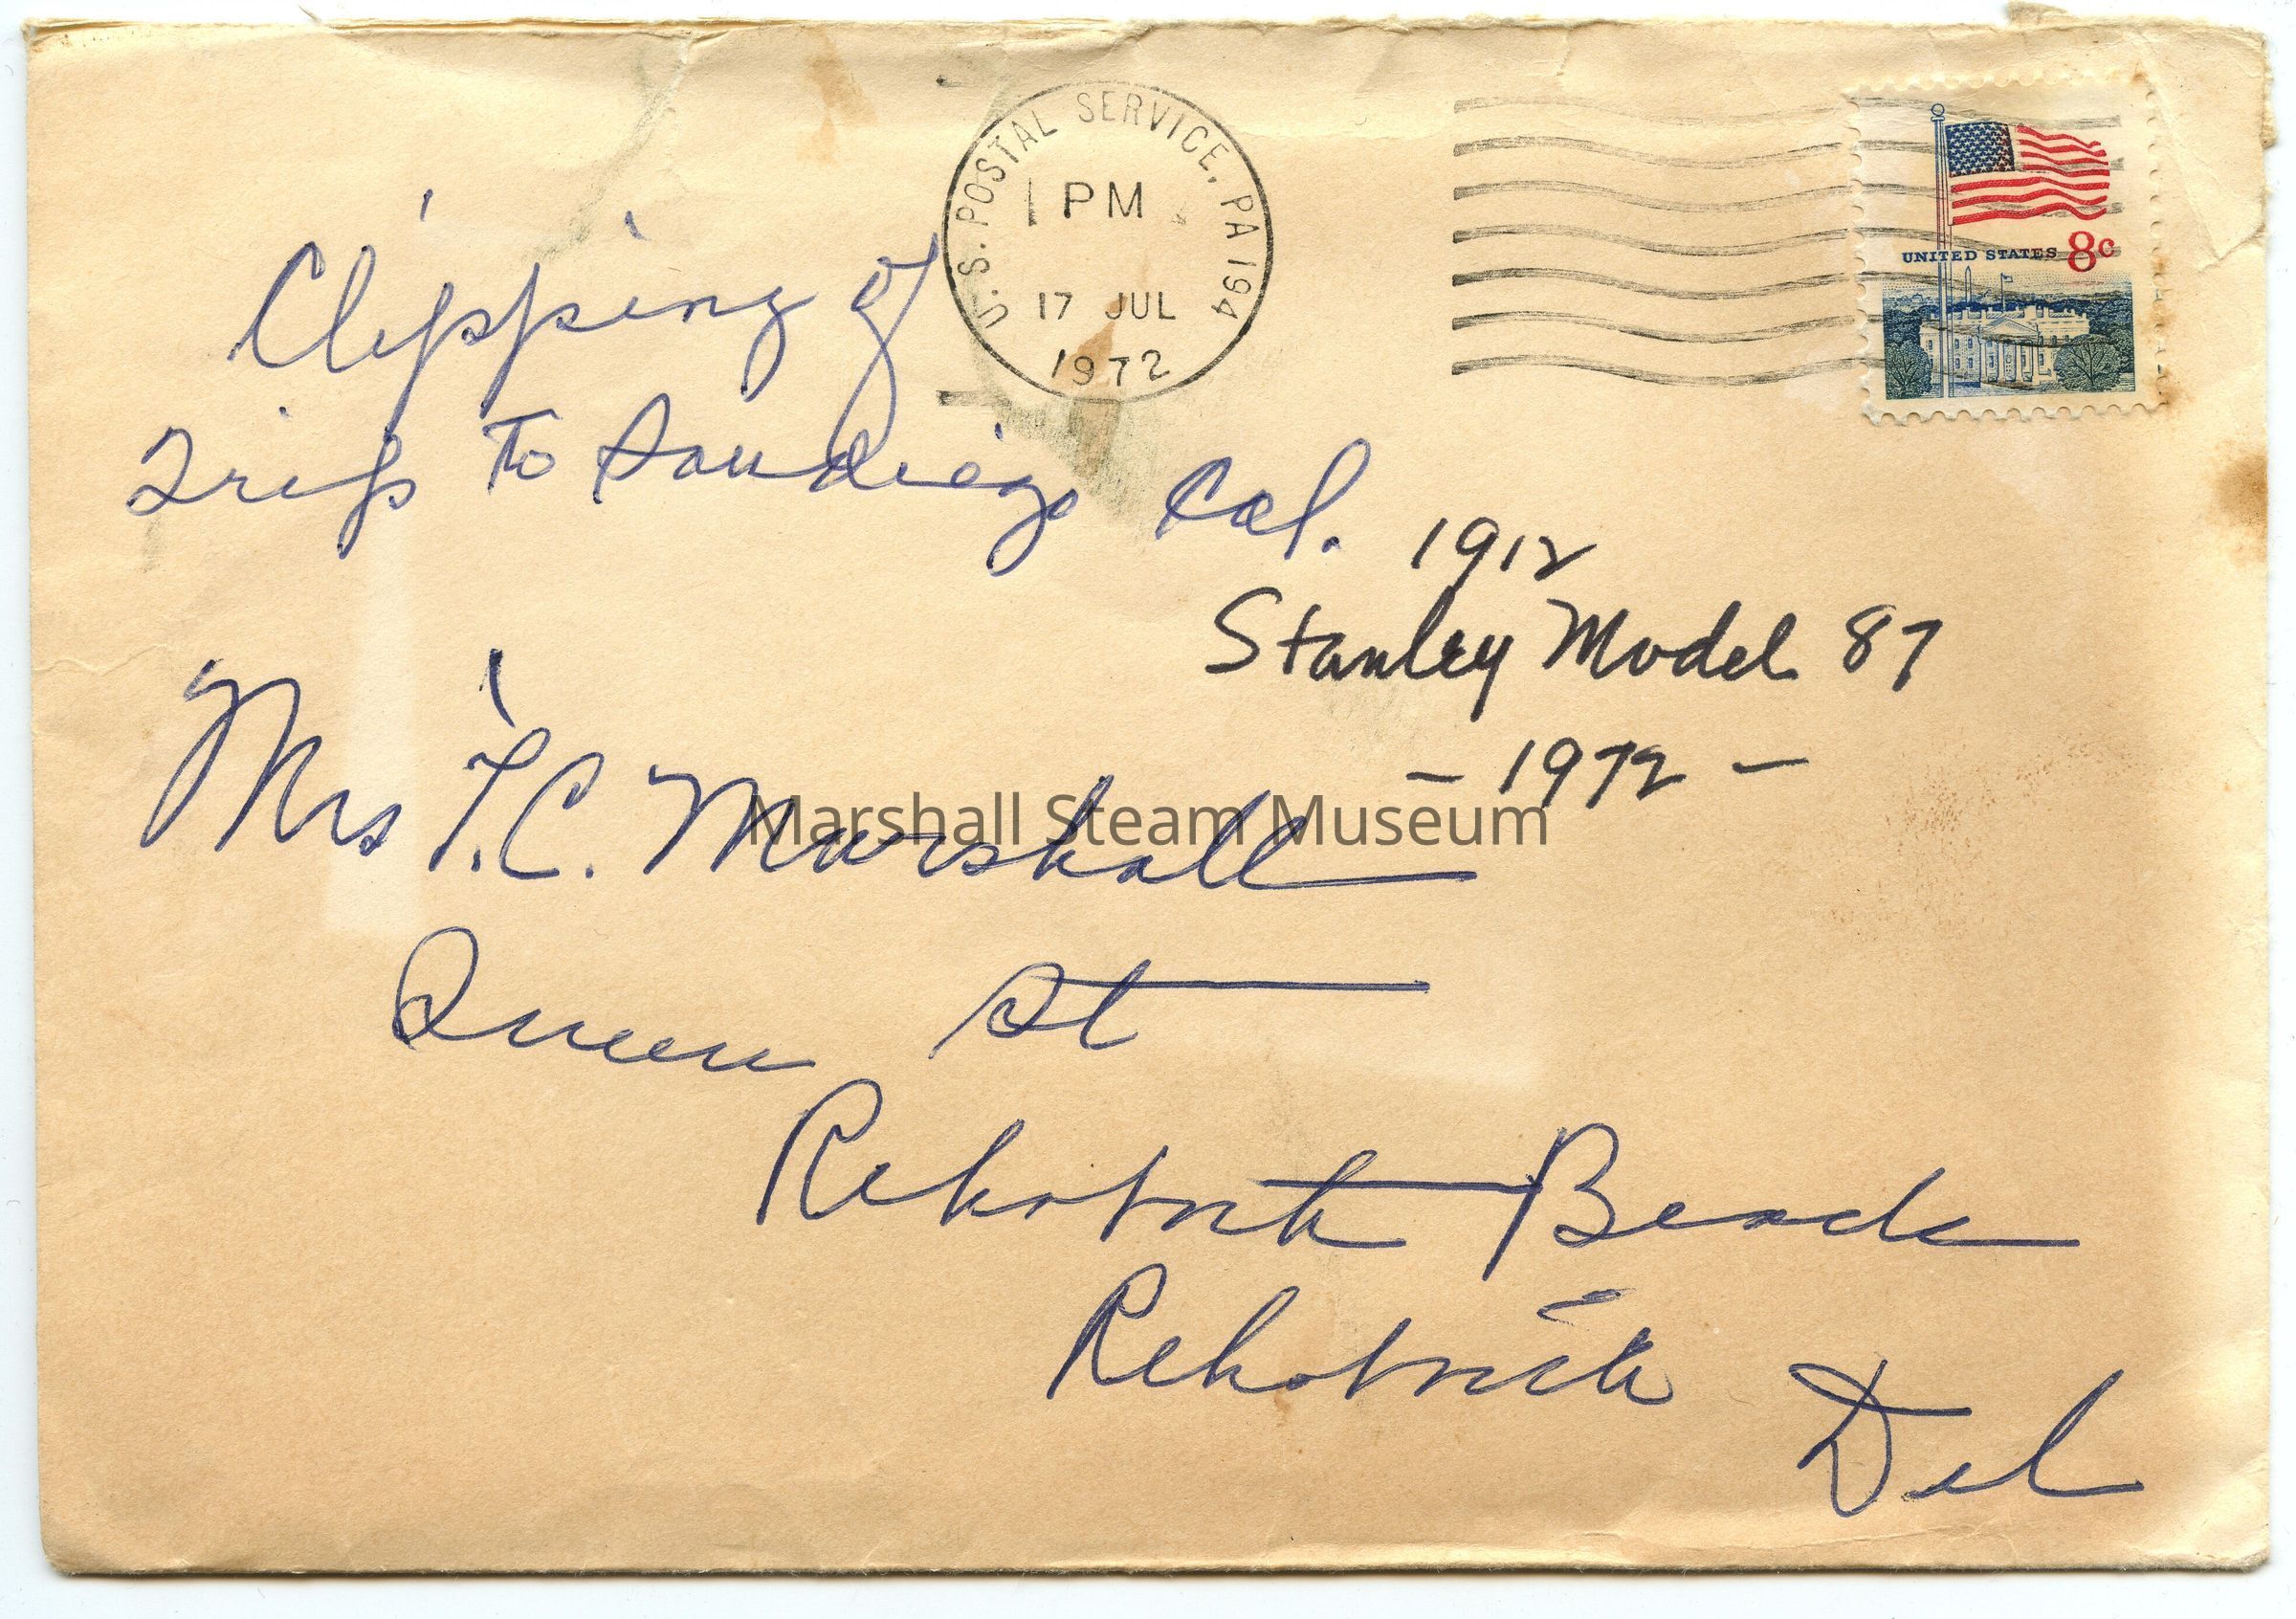 U.S. POSTAL SERVICE, PA 194
1 PM
17 JUL
1972
UNITED STATES 8c
Clipping of
Trip To San Diego Cal.
1912
Stanley Model 87
- 1972 -
Mrs T.C. Marshall
Marshall Steam Museum
Queen St
Rehoboth Beach
Rehoboth Del